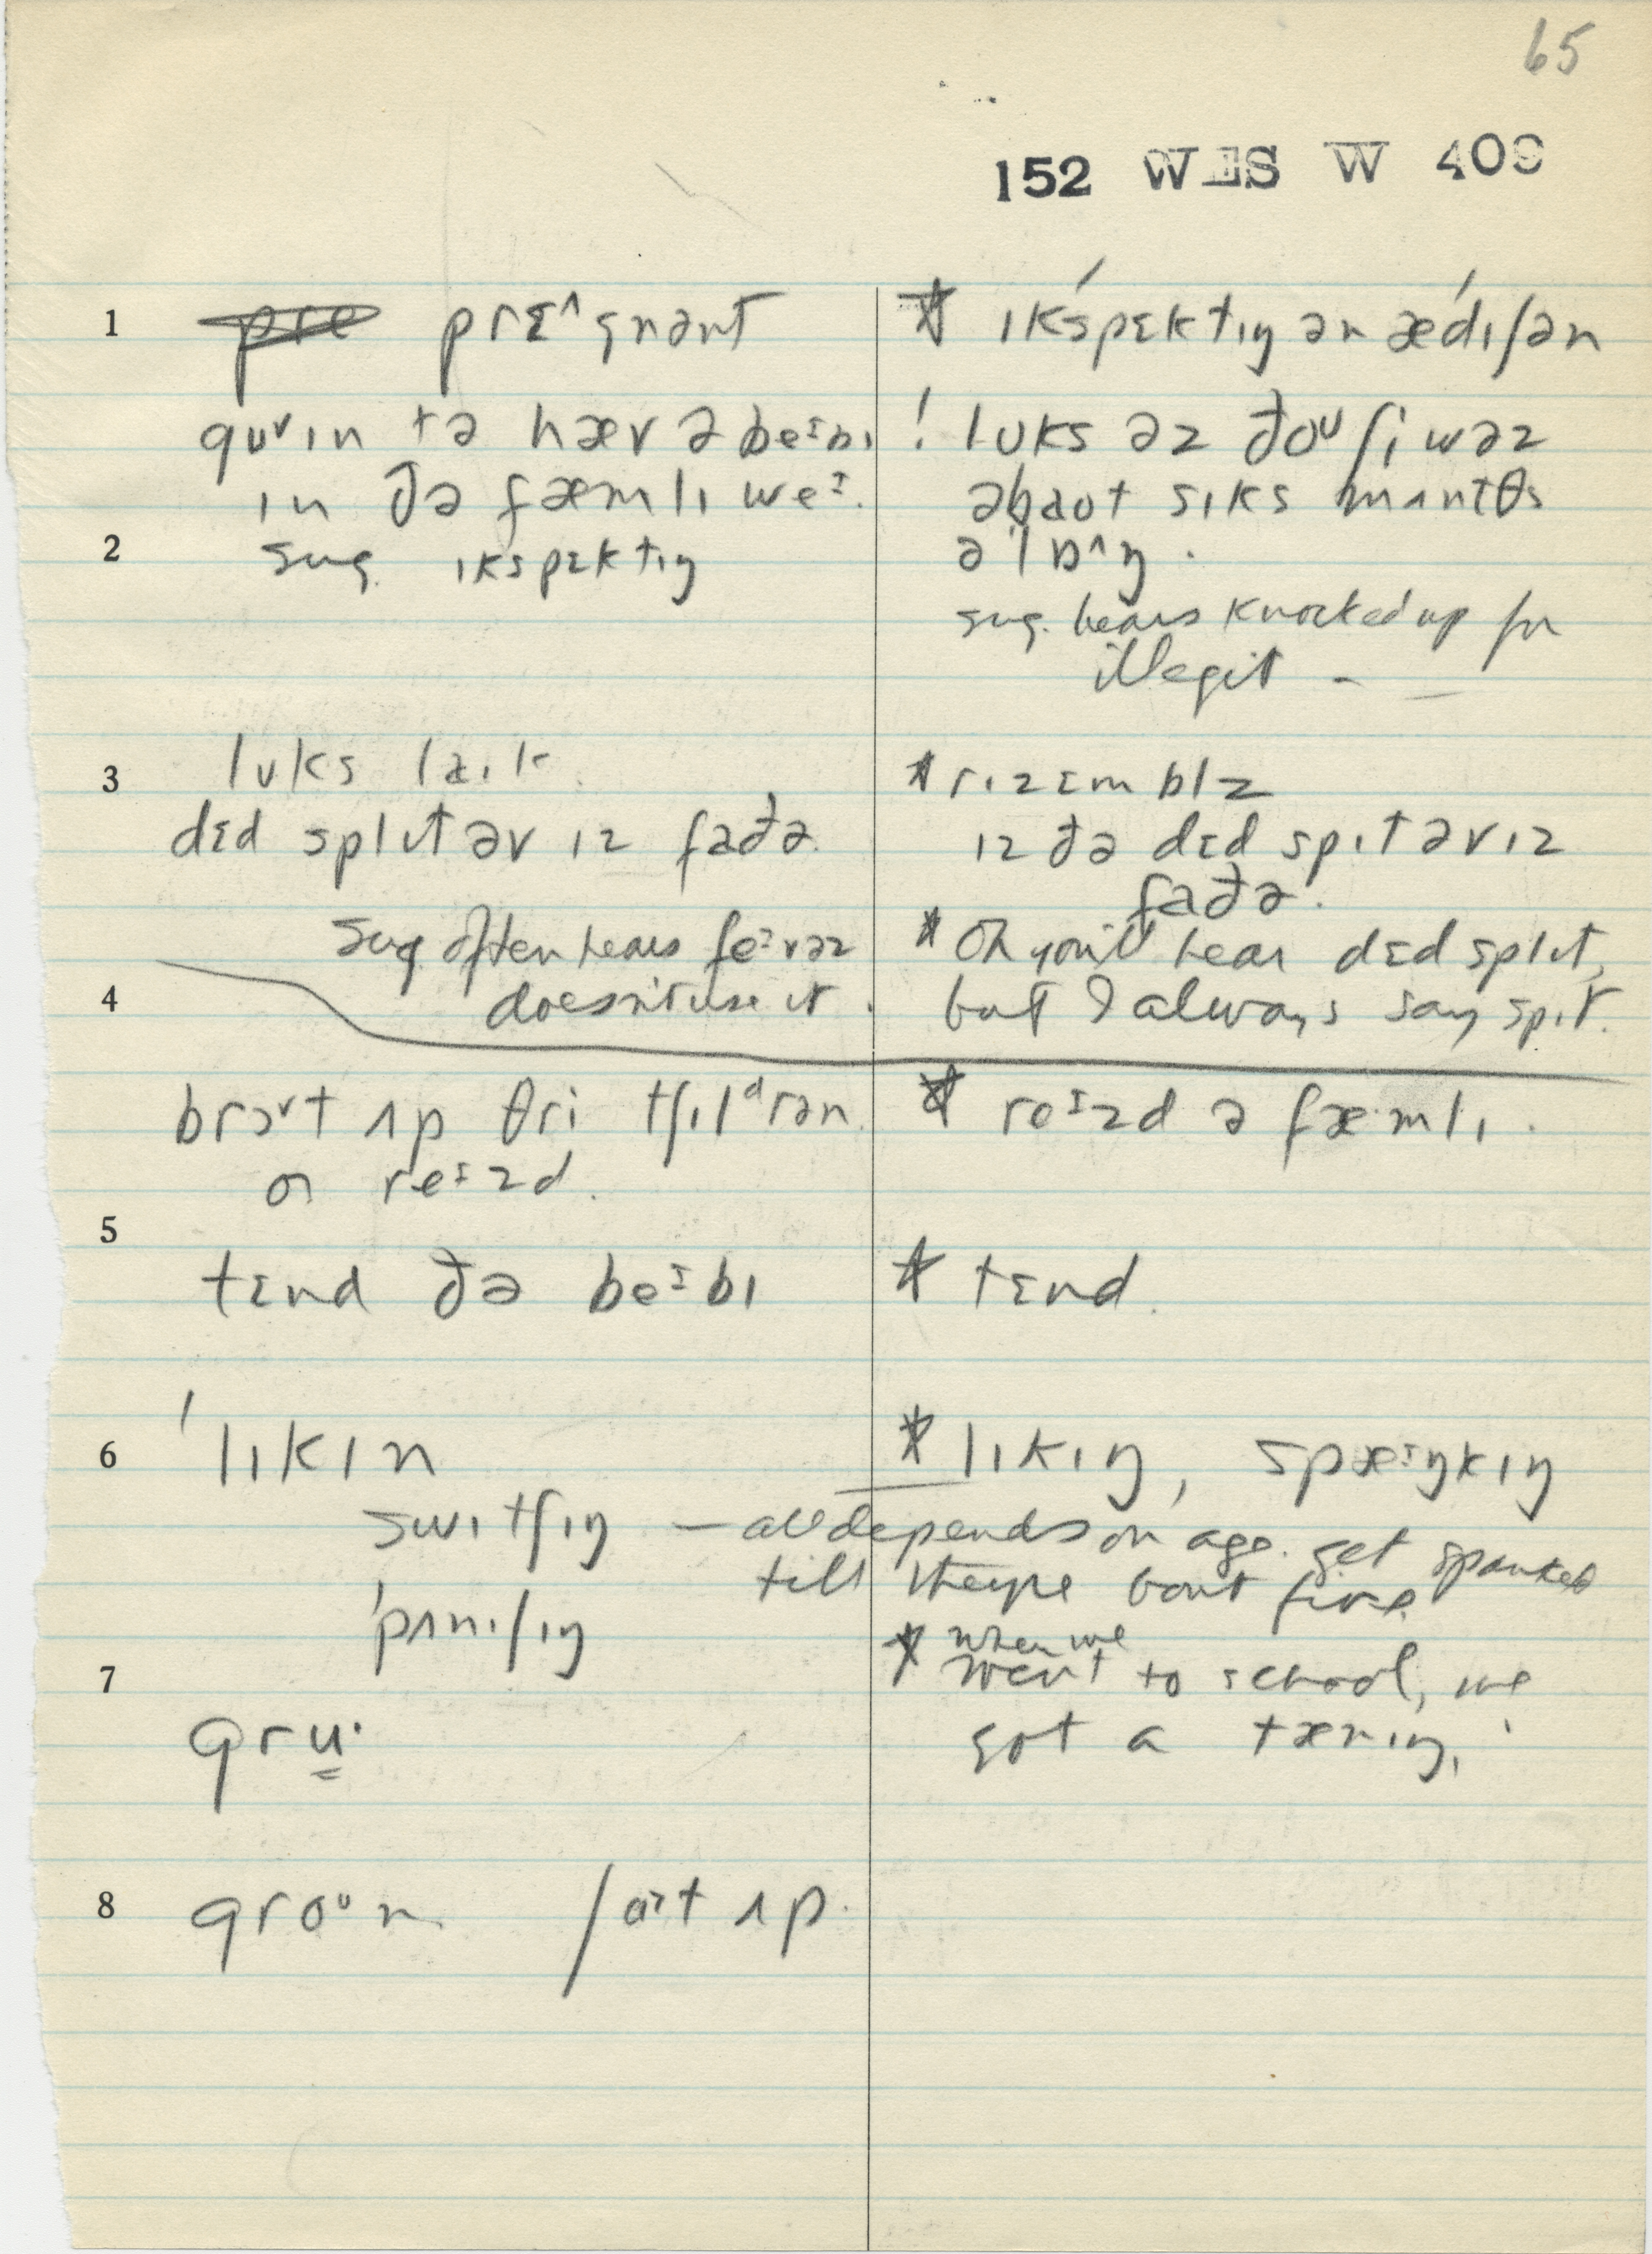 65
152 WES W 409
1
~~pre~~ prɛ^gnənt
guᵛɪn tə hæv ə beᶦbɪ
ɪn ðə fæmlɪ weᶦ.
2
sug. ɪkspɛktɪŋ
3
lʊks laɪk
dɛd splɪt əv ɪz faðə.
sug often hears feᶦvəz
4
doesn't use it.
brɔᵛt ʌp θri tʃɪlᵈrən.
or reᶦzd.
5
tɛnd ðə beᶦbɪ
6
'lɪkɪn
swɪtʃɪŋ
'pʌnɪʃɪŋ
7
gru·
8
groᵘn ʃɒt ʌp.
* ɪkspɛktɪŋ ən ædɪʃən
! lʊks əz ðoᵘ ʃi wəz
əbaʊt sɪks mʌntθs
ə'lɒ^ŋ.
sug. hears knocked up for
illegit –
* rɪzɛmblz
ɪz ðə dɛd spɪt əv ɪz
faðə.
* Oh you'll hear dɛd splɪt,
but I always say spɪt.
* reᶦzd ə fæ·mlɪ.
* tɛnd.
* lɪkɪŋ, spæᶦŋkɪŋ
— all depends on age. get spanked
till they're bout five.
* when we
went to school, we
got a tænɪŋ.